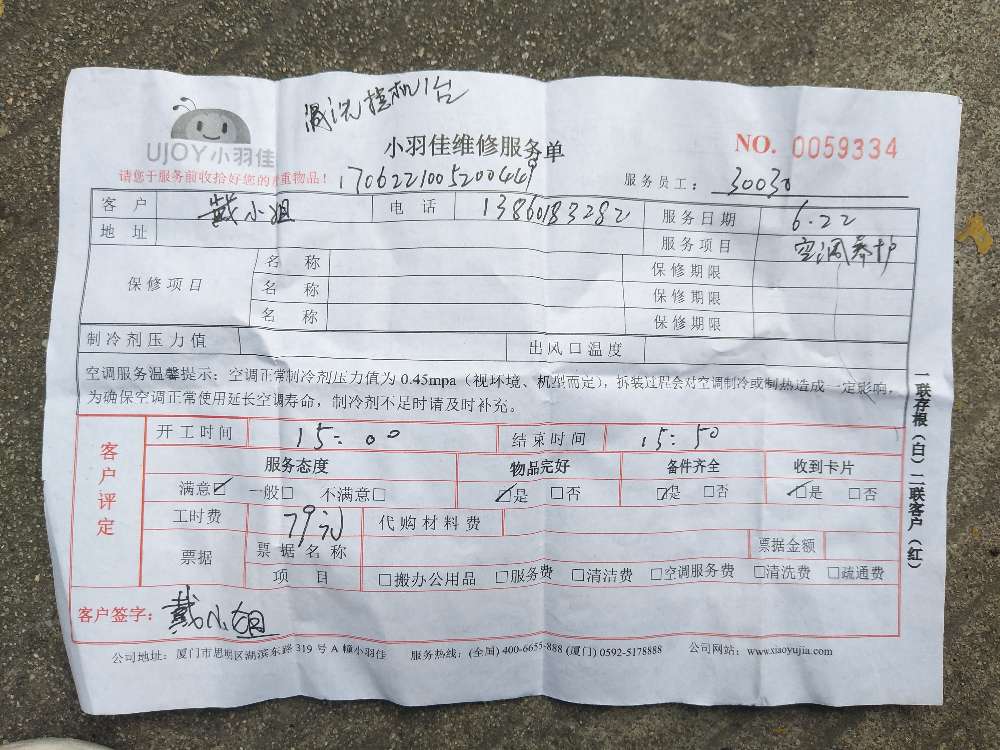 清洗挂机1台
UJOY小羽佳
小羽佳维修服务单
NO. 0059334
请您于服务前收拾好您的贵重物品!
170622100520044
服务员工: 30030
客户 戴小姐 电话 13860183282 服务日期 6.22
地址 服务项目 空调养护
保修项目 名称 保修期限
名称 保修期限
名称 保修期限
制冷剂压力值 出风口温度
空调服务温馨提示:空调正常制冷剂压力值为 0.45mpa(视环境、机型而定),拆装过程会对空调制冷或制热造成一定影响,
为确保空调正常使用延长空调寿命,制冷剂不足时请及时补充。
一联存根(白)二联客户(红)
客户评定
开工时间 15:00 结束时间 15:50
服务态度 物品完好 备件齐全 收到卡片
满意☑ 一般□ 不满意□ ☑是 □否 ☑是 □否 ☑是 □否
工时费 79元 代购材料费
票据 票据名称 票据金额
项目 □搬办公用品 □服务费 □清洁费 □空调服务费 □清洗费 □疏通费
客户签字: 戴小姐
公司地址:厦门市思明区湖滨东路 319 号 A 幢小羽佳 服务热线:(全国) 400-6655-888 (厦门) 0592-5178888 公司网站:www.xiaoyujia.com